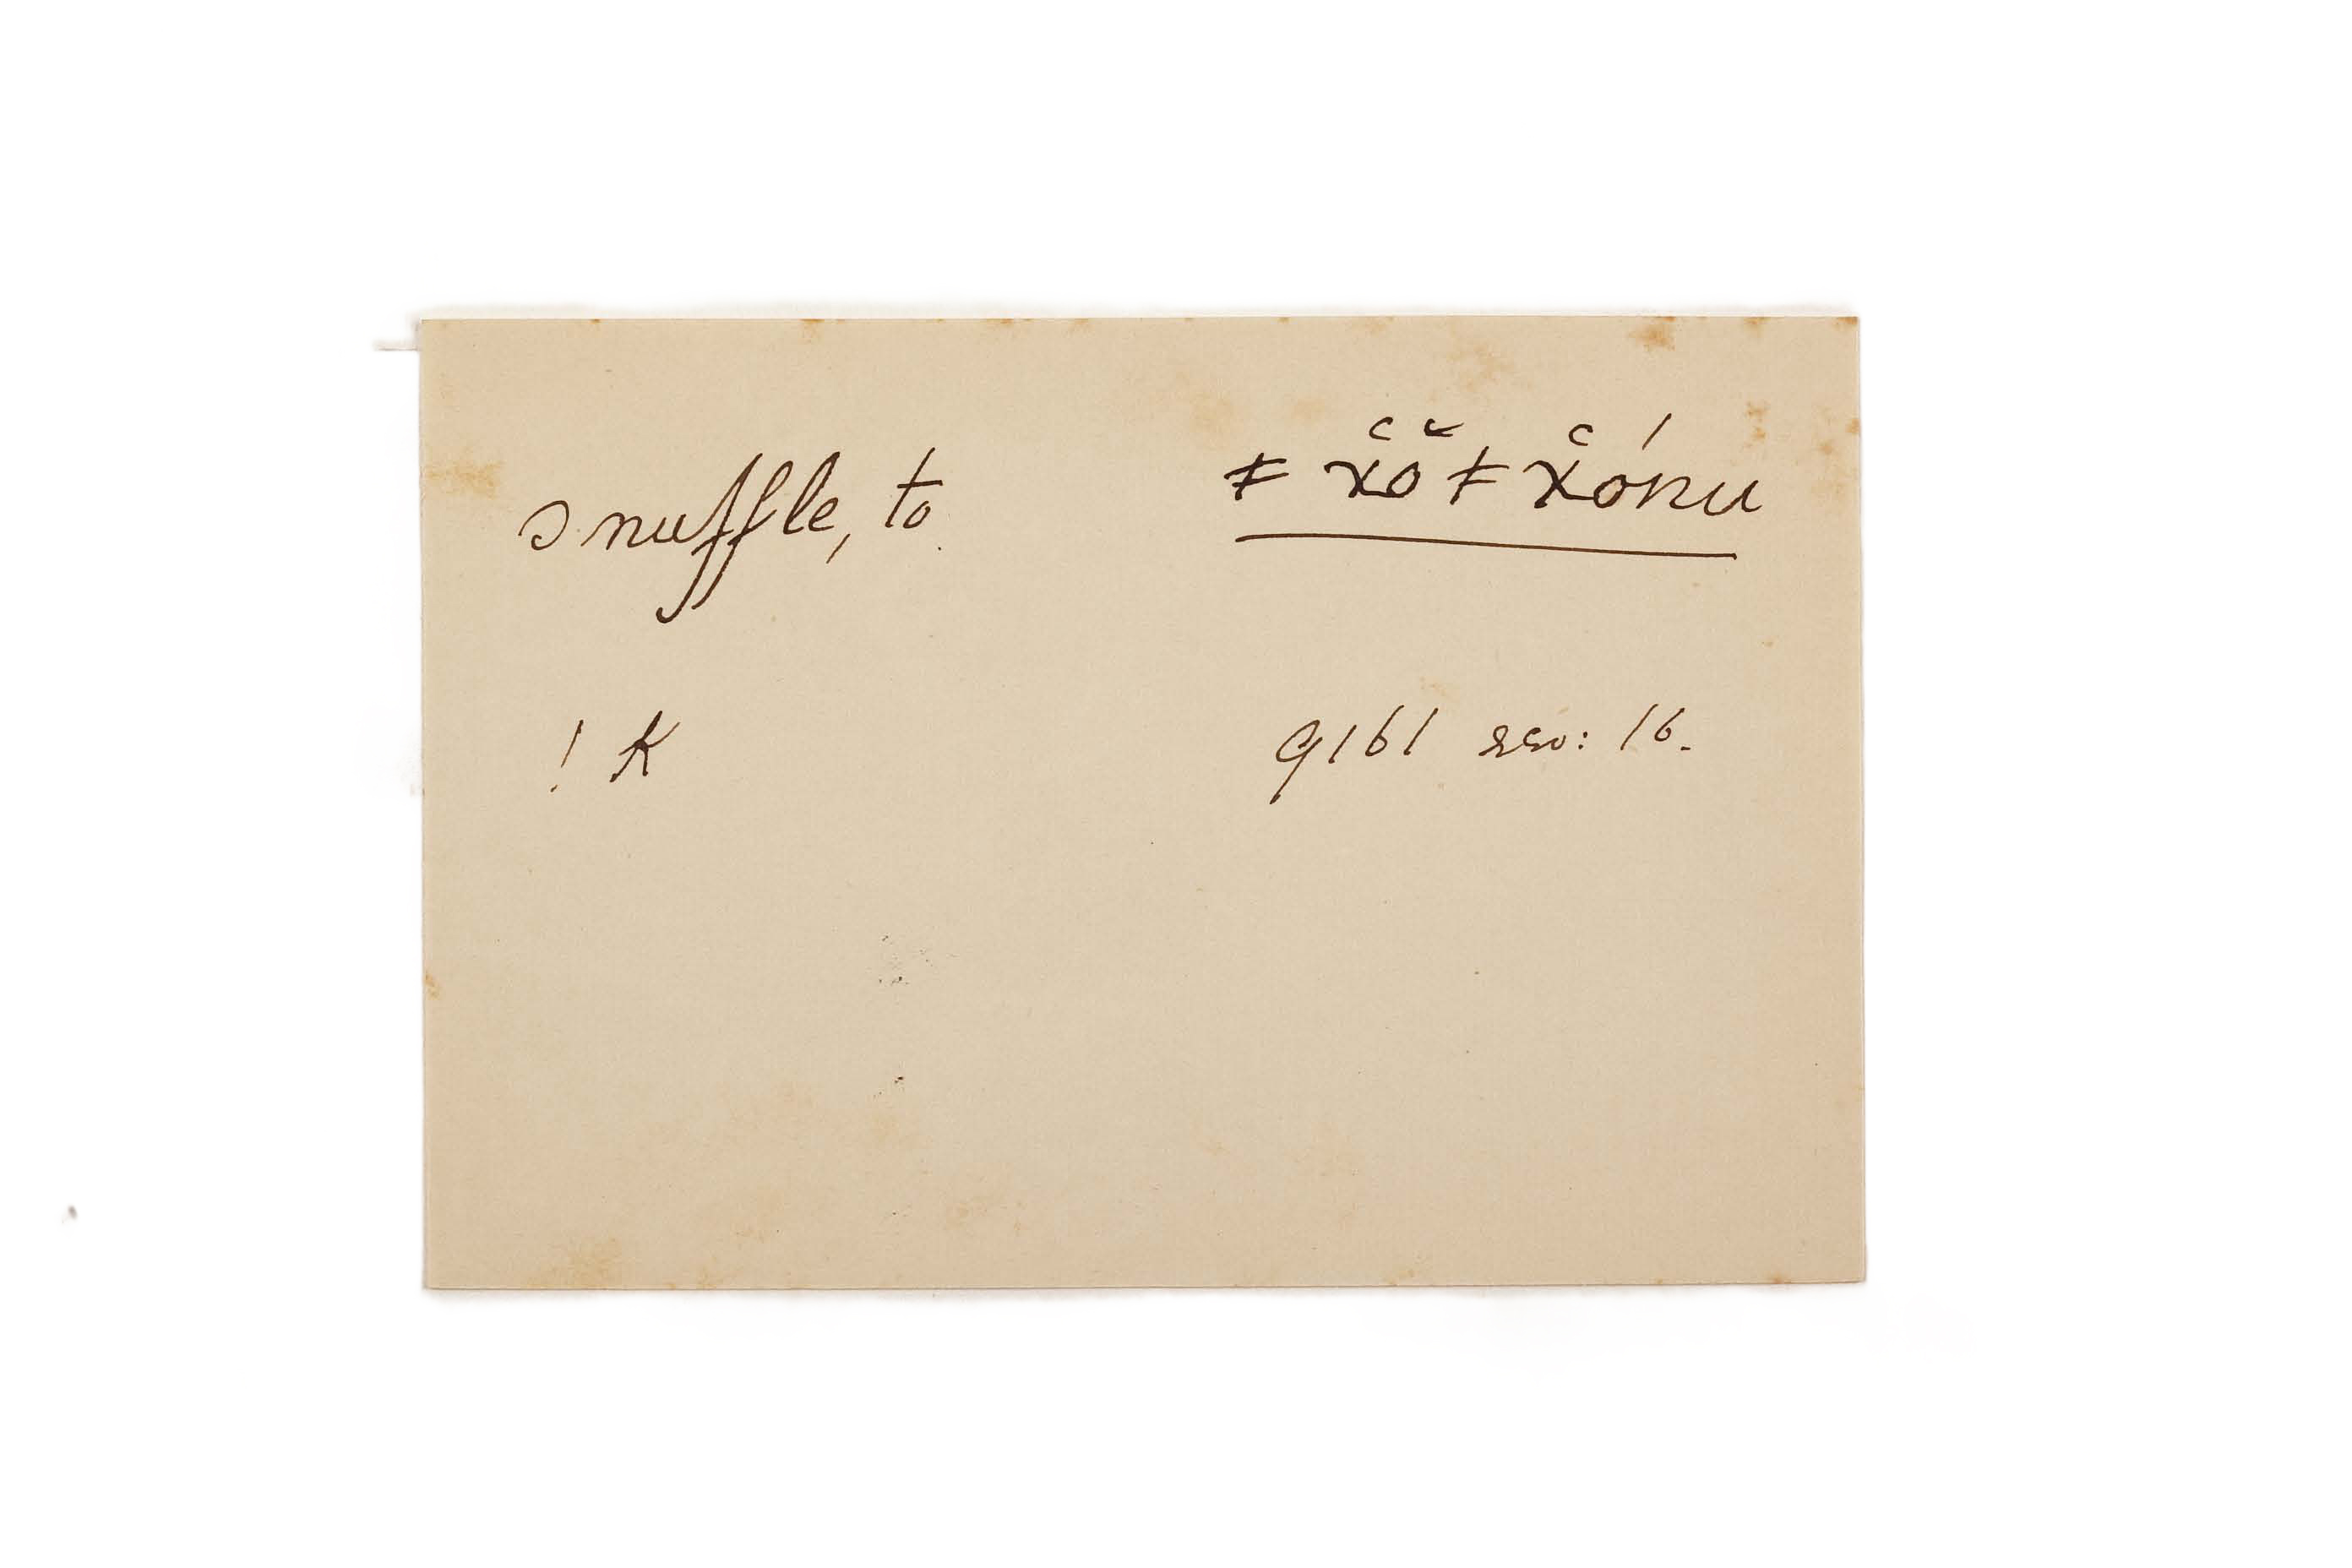 snuffle, to ǂ χ̆ŏ ǂ χ̆ónu
! K 9161 rev: 16.